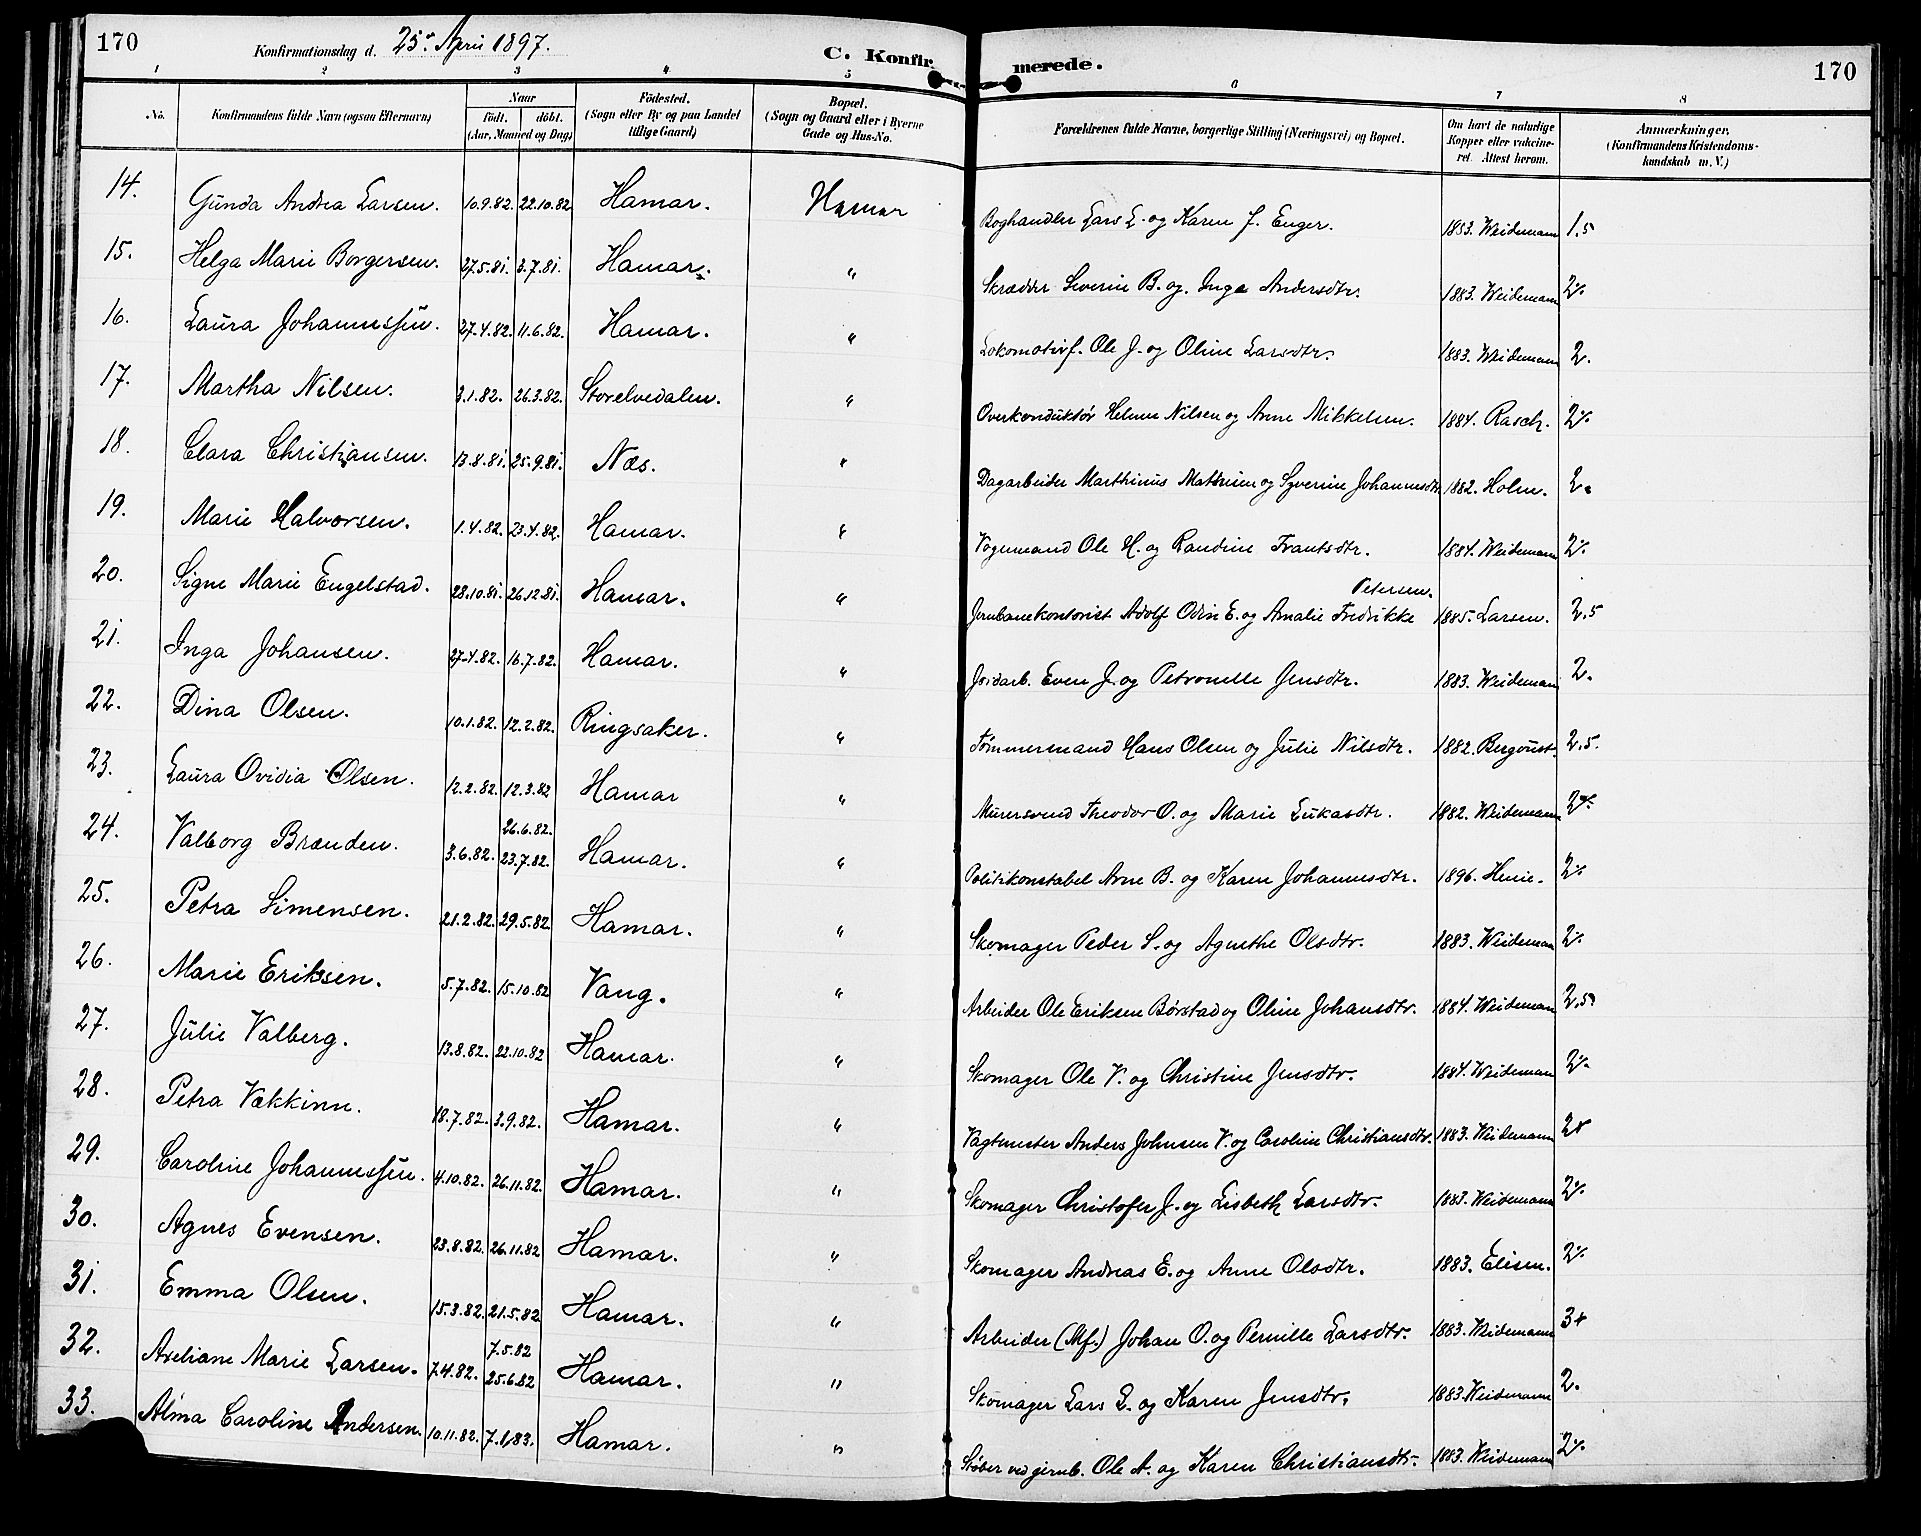 170
Konfirmationsdag d. 25de April 1897.
C. Konfirmerede.
170
1 2 3 4 5 6 7 8
No.
Konfirmandens fulde Navn (ogsaa Efternavn)
Naar
født. døbt.
(Aar, Maaned og Dag).
Fødested.
(Sogn eller By og paa Landet
tillige Gaard)
Bopæl.
(Sogn og Gaard eller i Byerne
Gade og Hus-No.
Forældrenes fulde Navne, borgerlige Stilling (Næringsvei) og Bopæl.
Om havt de naturlige
Kopper eller vaccine-
ret. Attest herom.
Anmærkninger.
(Konfirmandens Kristendoms-
kundskab m. V.)
14. Gunda Andrea Larsen. 10.9.82. 22.10.82 Hamar. Hamar Boghandler Lars L. og Karen J. Enger. 1883. Weidemann 1,5
15. Helga Marie Borgersen. 27.5.81. 3.7.81. Hamar. " Skrædder Severin B. og Inga Andersdtr. 1883. Weidemann 2%
16. Laura Johannessen. 27.4.82. 11.6.82. Hamar. " Lokomotivf. Ole J. og Oline Larsdtr. 1883. Weidemann 2.
17. Martha Nilsen. 3.1.82. 26.3.82. Storelvedalen. " Overkonduktør Helmer Nilsen og Anne Mikkelsen. 1884. Rasch. 2%
18. Clara Christiansen. 13.8.81. 25.9.81. Næs. " Dagarbeider Marthinus Mathisen og Syverine Johannesdtr. 1882. Holm. 2.
19. Marie Halvorsen. 1.4.82. 23.4.82. Hamar. " Vognmand Ole H. og Randine Frantsdtr. 1884. Weidemann 2%
Petersen.
20. Signe Marie Engelstad. 28.10.81. 26.12.81. Hamar. " Jernbanekontorist Adolf Odin E. og Amalie Fredrikke 1885. Larsen. 2,5
21. Inga Johansen. 27.4.82. 16.7.82. Hamar. " Jordarb. Even J. og Petronelle Jensdtr. 1883. Weidemann 2.
22. Dina Olsen. 10.1.82. 12.2.82. Ringsaker. " Tømmermand Hans Olsen og Julie Nilsdtr. 1882. Bergqvist. 2,5.
23. Laura Ovidia Olsen. 12.2.82. 12.3.82 Hamar " Murersvend Theodor O. og Marie Lukasdtr. 1882. Weidemann 2%
26.6.82.
24. Valborg Brænden. 3.6.82. 23.7.82. Hamar. " Politikonstabel Arne B. og Karen Johannesdtr. 1896. Henie. 2%
25. Petra Simensen. 21.2.82. 29.5.82. Hamar. " Skomager Peder S. og Agnethe Olsdtr. 1883. Weidemann 2%
26. Marie Eriksen. 5.7.82. 15.10.82 Vang. " Arbeider Ole Eriksen Børstad og Oline Johansdtr. 1884. Weidemann 2,5
27. Julie Valberg. 13.8.82. 22.10.82 Hamar. " Skomager Ole V. og Christine Jensdtr. 1884. Weidemann 2%
28. Petra Vækkinn. 18.7.82. 3.9.82. Hamar. " Vagtmester Anders Johnsen V. og Caroline Christiansdtr. 1883. Weidemann 2+
29. Caroline Johannessen. 4.10.82. 26.11.82. Hamar. " Skomager Christofer J. og Lisbeth Larsdtr. 1883. Weidemann 2%
30. Agnes Evensen. 23.8.82. 26.11.82 Hamar. " Skomager Andreas E. og Anne Olsdtr. 1883. Elisen. 2%
31. Emma Olsen. 15.3.82. 21.5.82 Hamar. " Arbeider (Mf.) Johan O. og Pernille Larsdtr. 1883. Weidemann 3+
7.5.82
32. Axeliane Marie Larsen. 7.4.82. 25.6.82 Hamar. " Skomager Lars L. og Karen Jensdtr. 1883. Weidemann 2.
33. Alma Caroline Andersen. 10.11.82. 7.1.83. Hamar. " Støber ved jernb. Ole A. og Karen Christiansdtr. 1883. Weidemann 2%